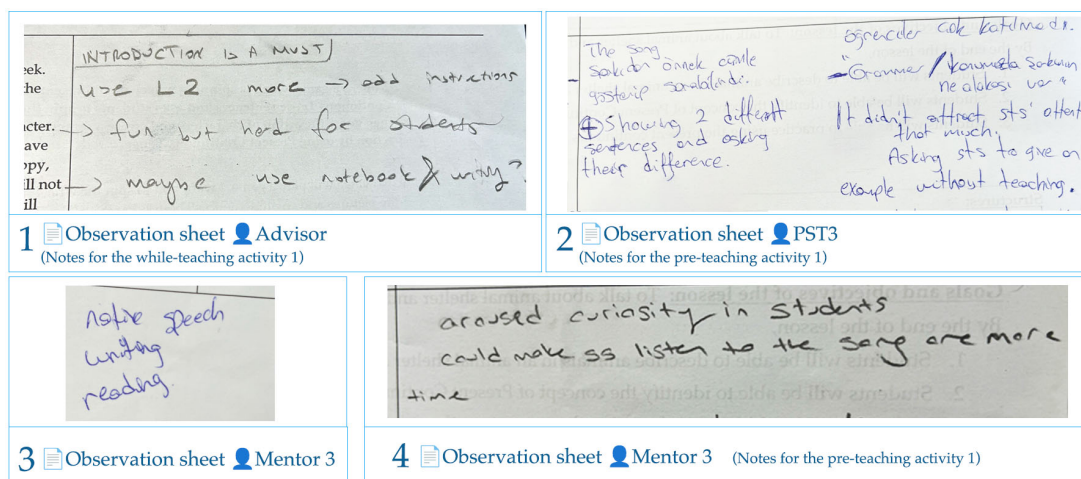 INTRODUCTION IS A MUST
use L2 more → add instructions
→ fun but hard for students
→ maybe use notebook &
eek.
the
acter.
ave
opy,
ill not
ill
1 Observation sheet Advisor
(Notes for the while-teaching activity 1)
The song
şarkıdan örnek cümle
gösterip soruldu.
+ Showing 2 different
sentences and asking
their difference.
öğrenciler çok katılmadı.
- "Grammer / konumuzla şarkının
ne alakası var"
It didn't attract sts' attent
that much.
Asking sts to give an
example without teaching.
2 Observation sheet PST3
(Notes for the pre-teaching activity 1)
native speech
writing
reading.
3 Observation sheet Mentor 3
aroused curiosity in students
could make ss listen to the song one more
time
4 Observation sheet Mentor 3 (Notes for the pre-teaching activity 1)